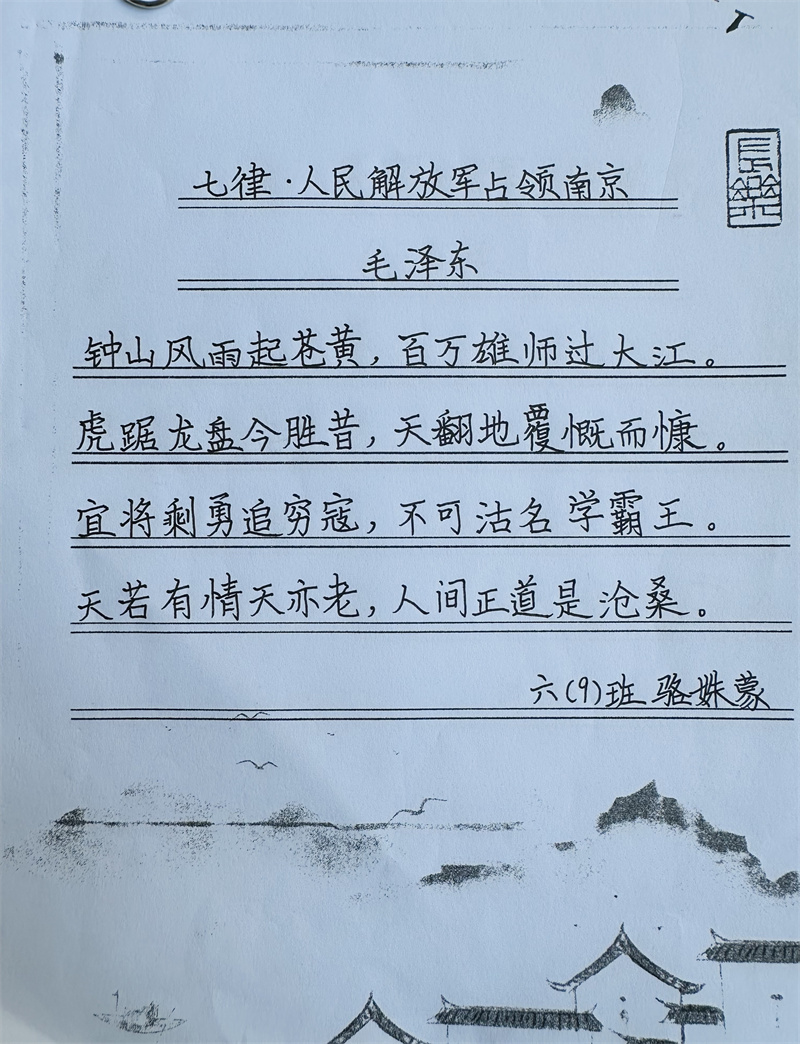 七律·人民解放军占领南京
毛泽东
钟山风雨起苍黄，百万雄师过大江。
虎踞龙盘今胜昔，天翻地覆慨而慷。
宜将剩勇追穷寇，不可沽名学霸王。
天若有情天亦老，人间正道是沧桑。
六(9)班 骆姝蒙
長樂